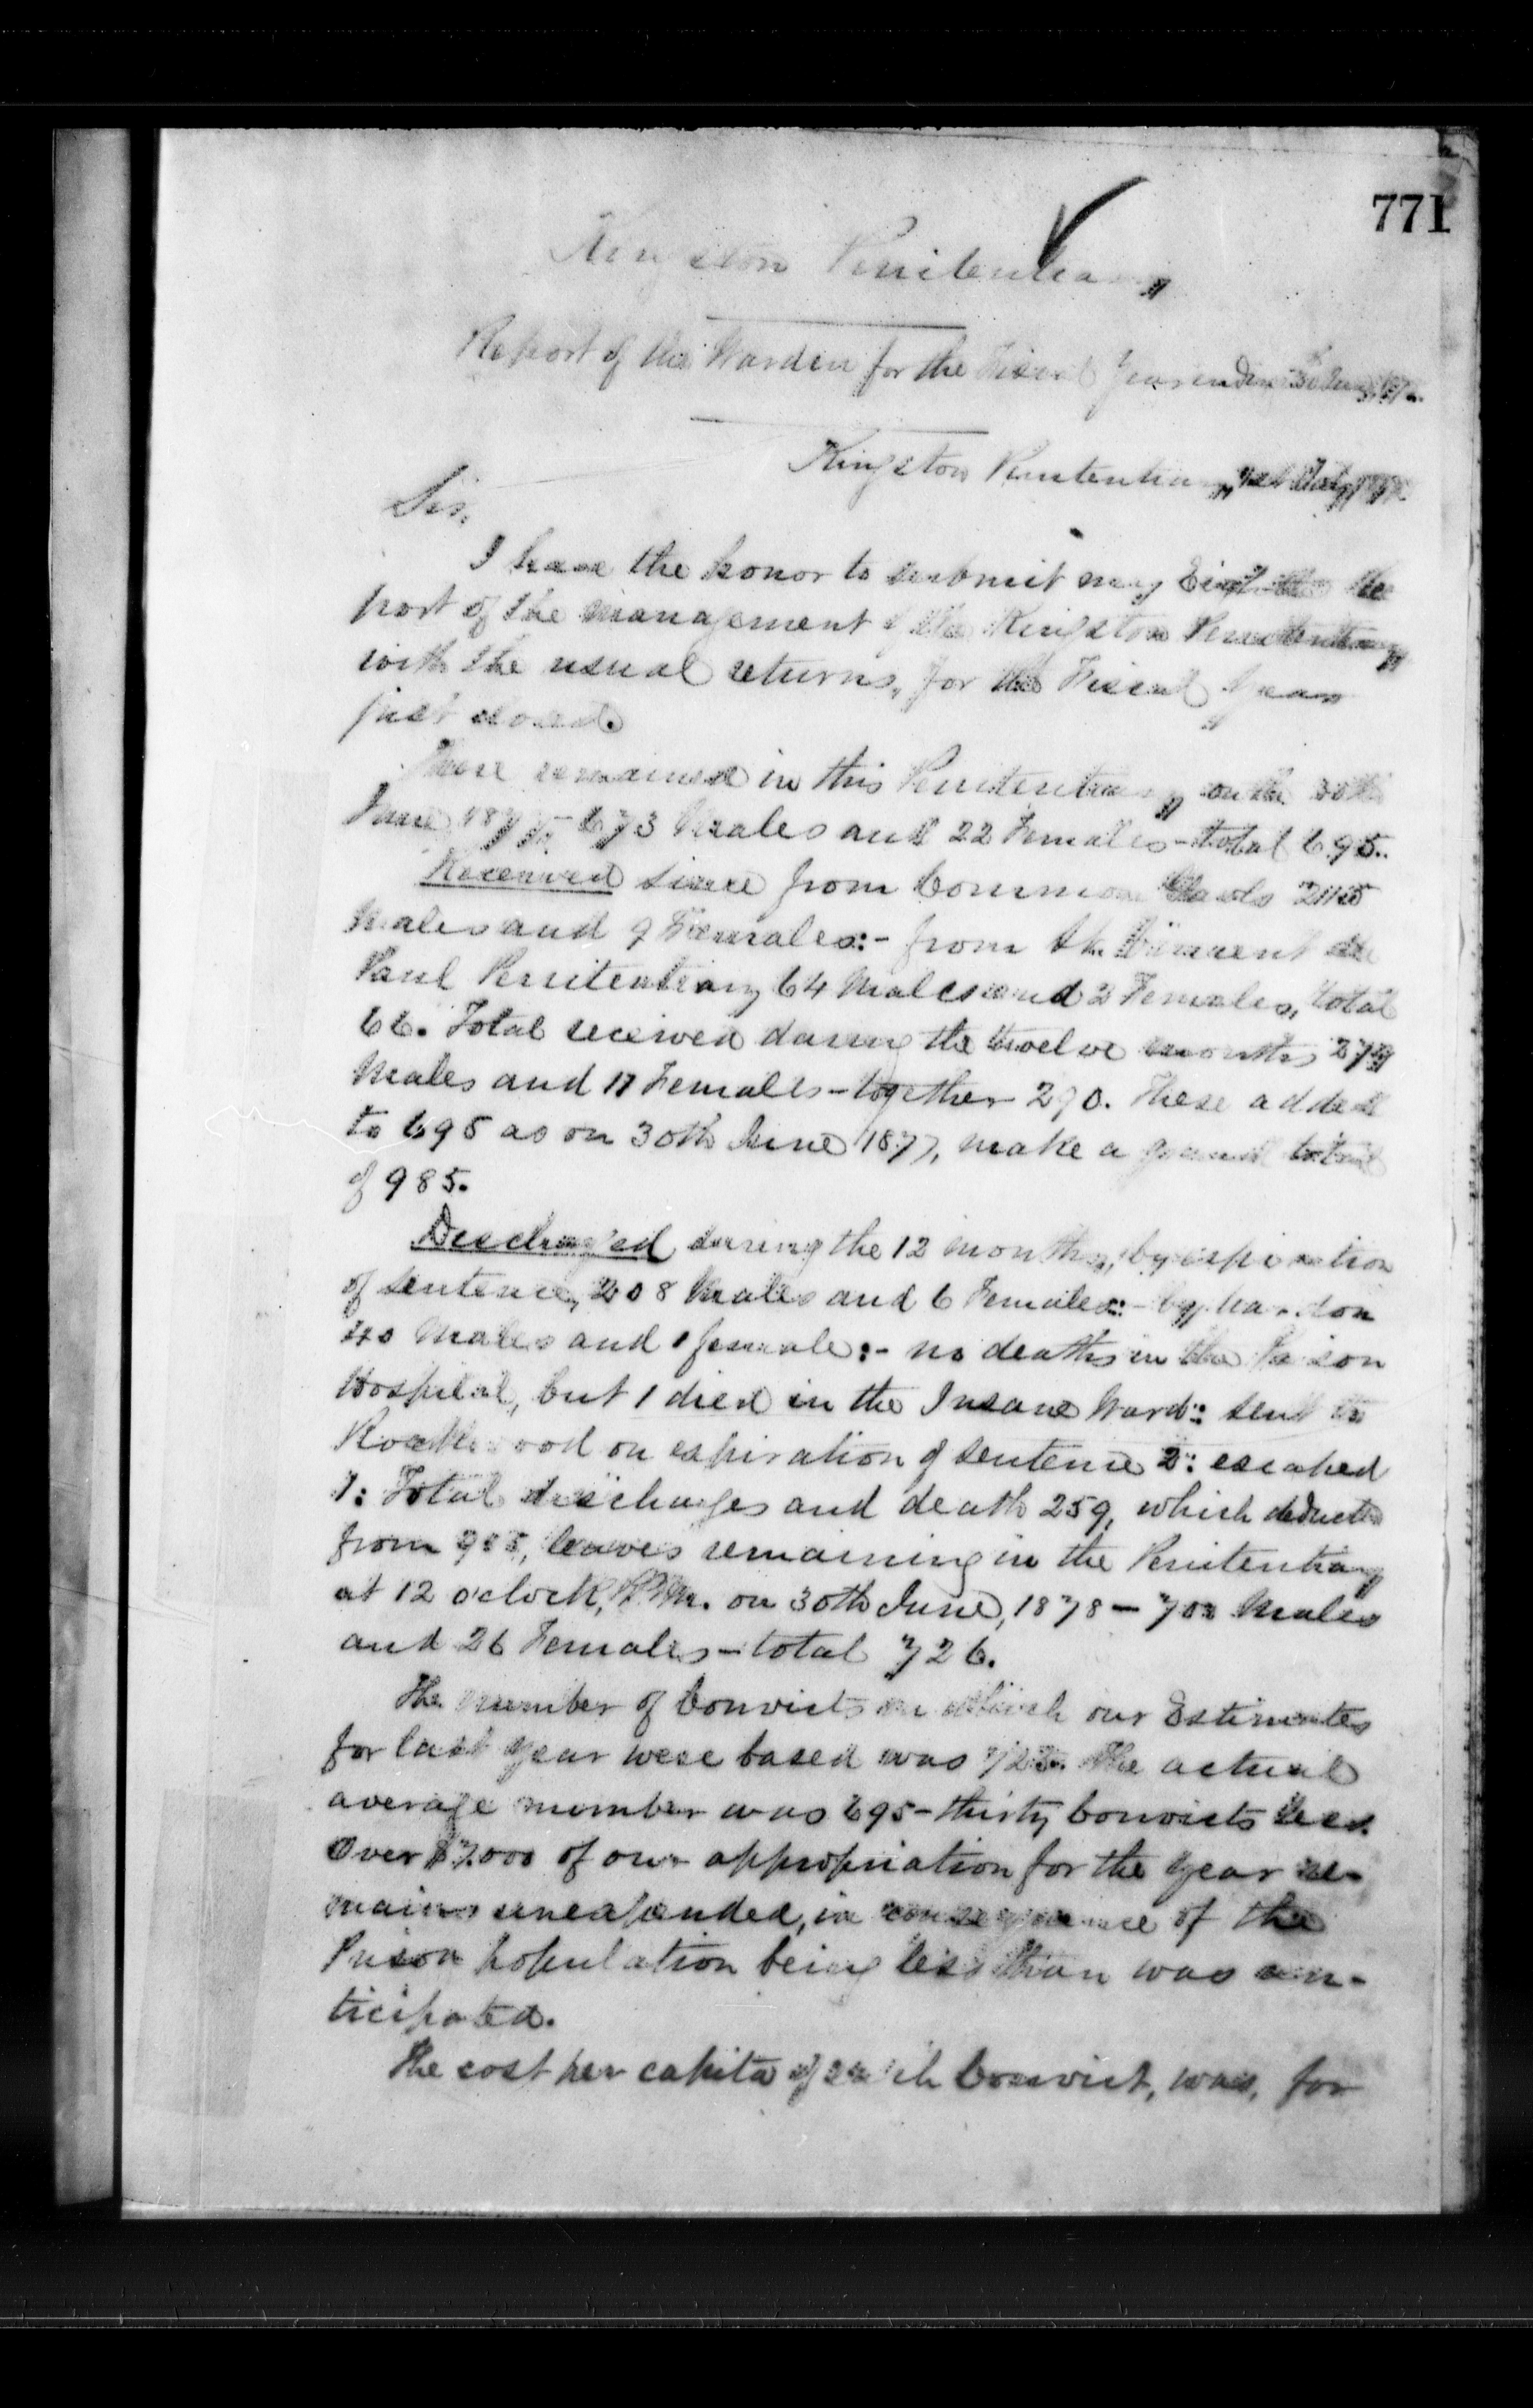 771
Kingston Penitentiary
Report of the Warden for the Fiscal Year ending 30 June,
Kingston Penitentiary, July
Sir,
I have the honor to submit my Re
port of the management of the Kingston Penitentiary
with the usual returns, for the Fiscal Year
just closed.
There remained in this Penitentiary on the 30th
June 1877, 673 Males and 22 Females - total 695.
Received since from Common Gaols
Males and 9 Females:- from St. Vincent de
Paul Penitentiary 64 Males and 2 Females, total
66. Total received during the twelve months 279
Males and 11 Females - together 290. These added
to 695 as on 30th June 1877, make a grand total
of 985.
Discharged during the 12 months, by expiration
of sentence, 208 Males and 6 Females:- by pardon
40 Males and 1 female:- no deaths in the Prison
Hospital, but 1 died in the Insane Ward: sent to
Rockwood on expiration of sentence 2: escaped
1: Total discharges and death 259, which deducted
from 985, leaves remaining in the Penitentiary
at 12 o'clock, P.M. on 30th June, 1878 - 700 Males
and 26 Females - total 726.
The number of Convicts on which our Estimates
for last year were based was 725. The actual
average number was 695 - thirty Convicts less.
Over $7.000 of our appropriation for the year re-
mains unexpended, in consequence of the
Prison population being less than was an-
ticipated.
The cost per capita of each Convict, was, for